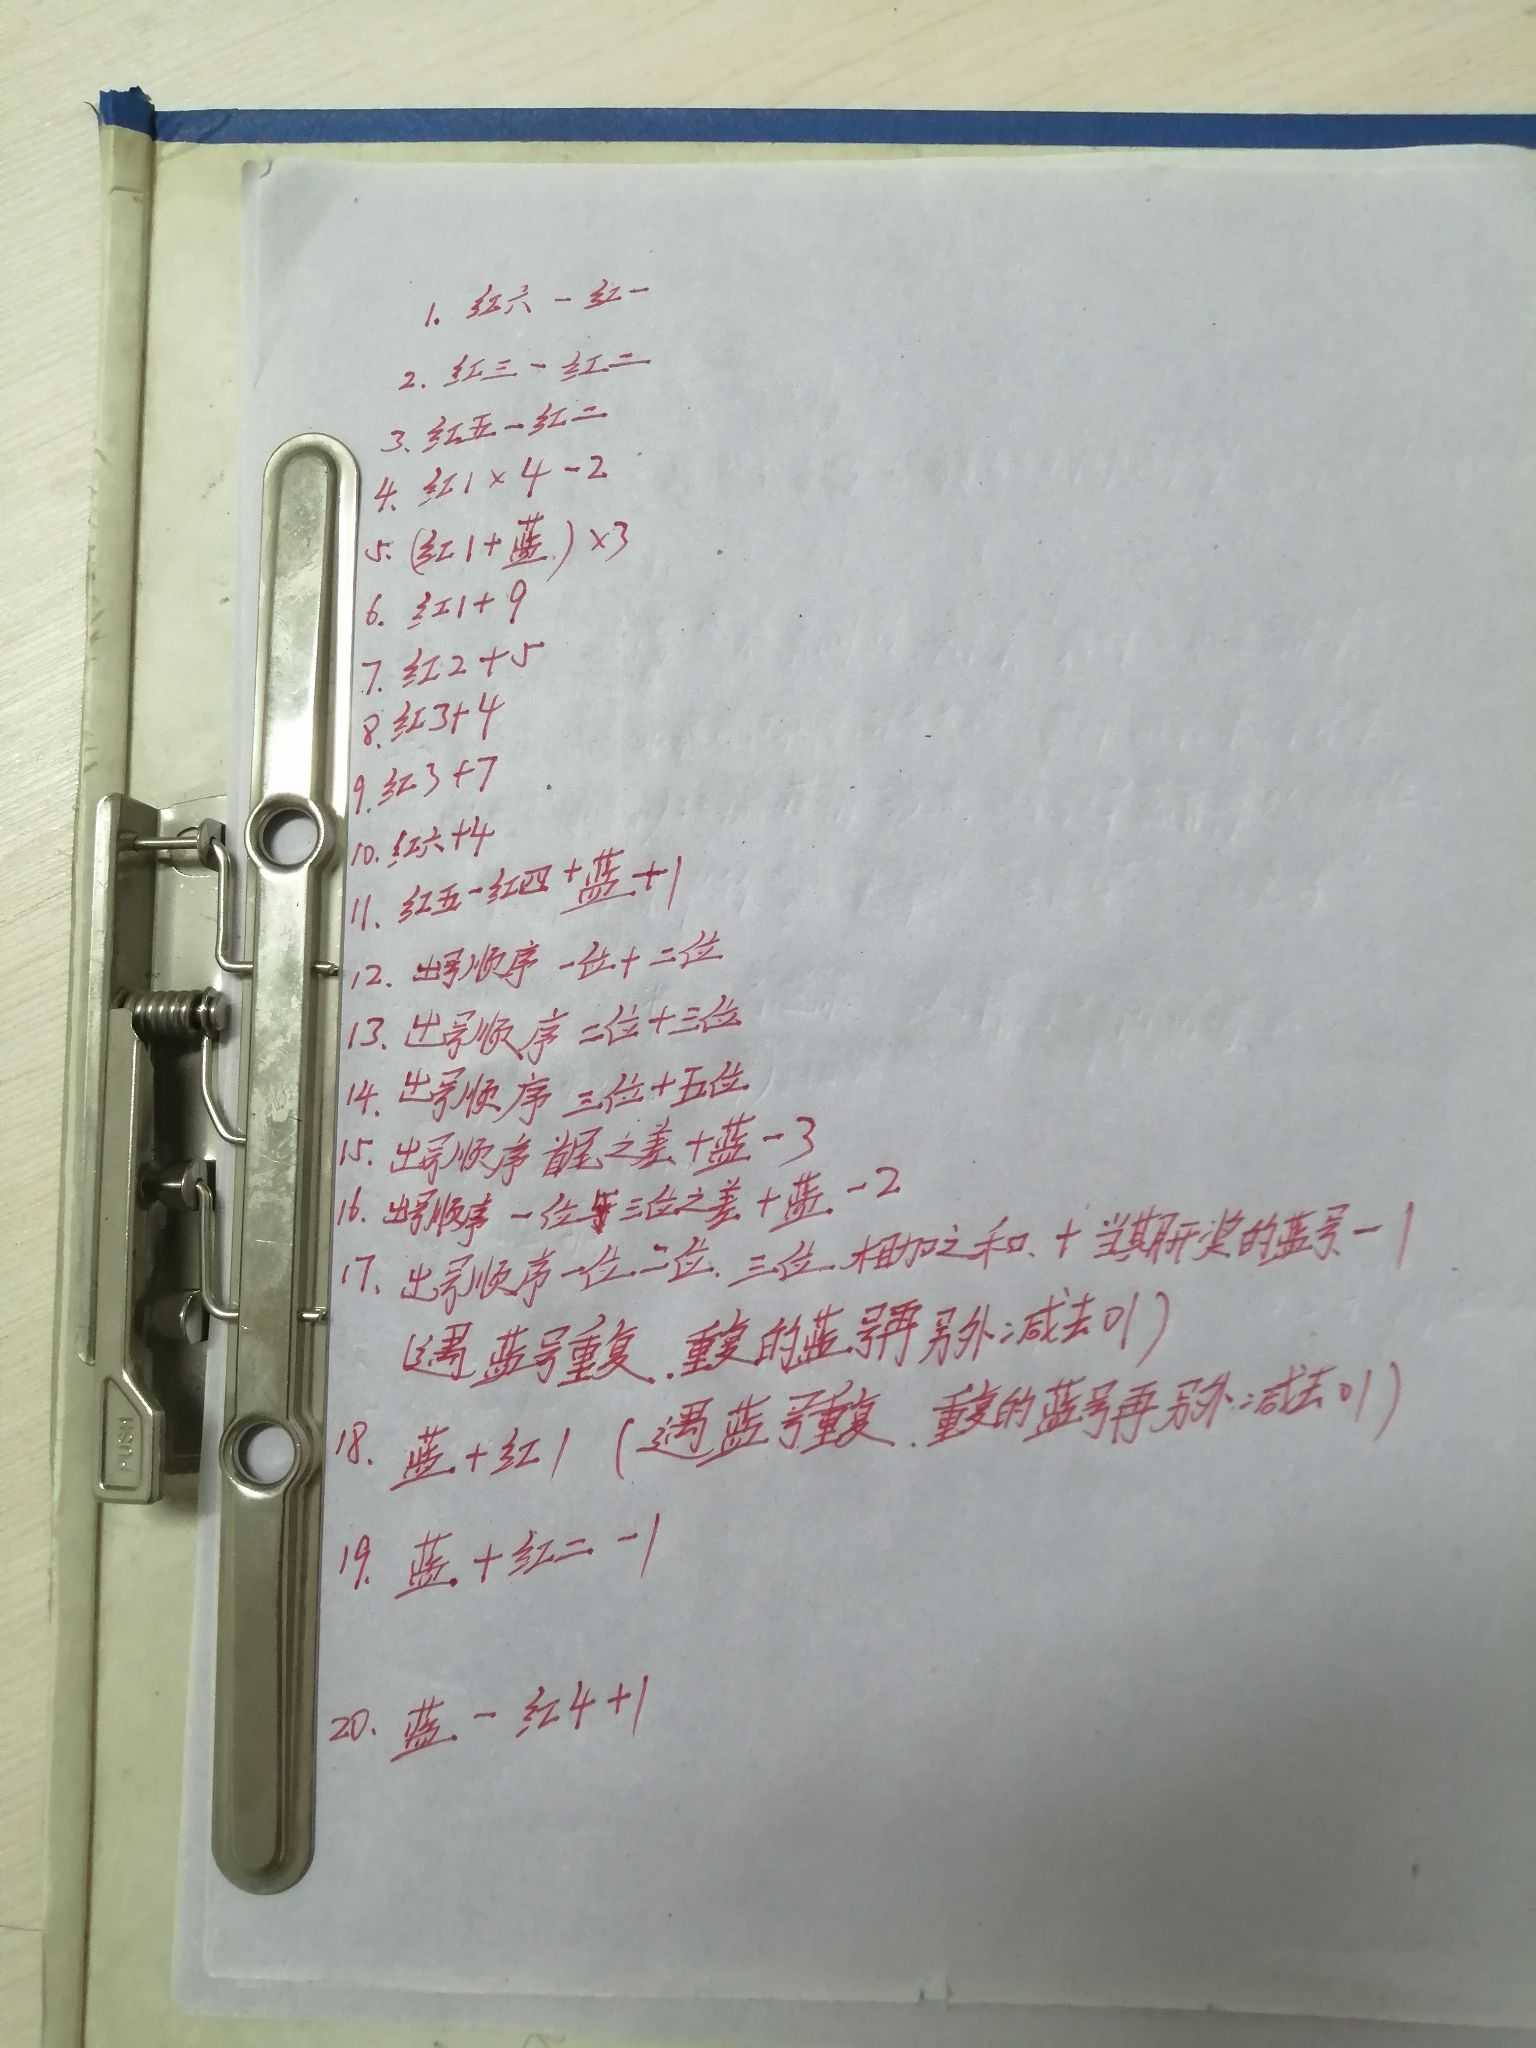 1. 红六－红一
2. 红三－红二
3. 红五－红二
4. 红1×4－2
5. (红1+蓝)×3
6. 红1+9
7. 红2+5
8. 红3+4
9. 红3+7
10. 红六+4
11. 红五－红四+蓝+1
12. 出号顺序 一位+二位
13. 出号顺序 二位+三位
14. 出号顺序 三位+五位
15. 出号顺序 首尾之差+蓝－3
16. 出号顺序 一位与三位之差+蓝－2
17. 出号顺序一位二位.三位.相加之和.+当期开奖的蓝号－1
(遇蓝号重复.重复的蓝号再另外减去01)
18. 蓝+红1 (遇蓝号重复.重复的蓝号再另外减去01)
19. 蓝+红二－1
20. 蓝－红4+1
PUSH